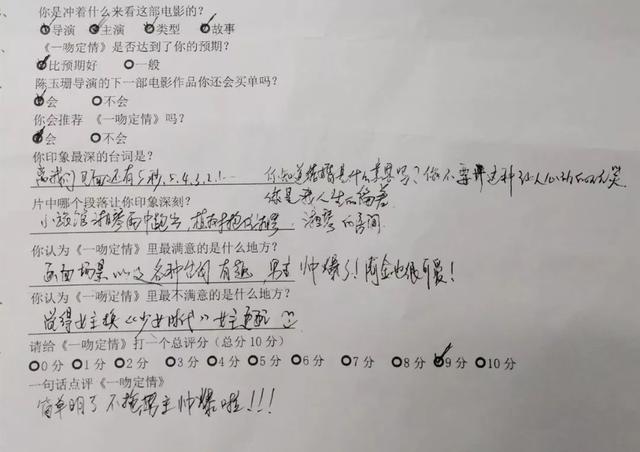 你是冲着什么来看这部电影的?
导演 主演 类型 故事
《一吻定情》是否达到了你的预期?
比预期好 一般
陈玉珊导演的下一部电影作品你还会买单吗?
会 不会
你会推荐《一吻定情》吗?
会 不会
你印象最深的台词是?
离我们见面还有5秒,5.4.3.2.1! 你知道 是什么意思吗? 你不要用这种 笑
你是我人生的
片中哪个段落让你印象深刻?
湘琴雨中跑出 湘琴的房间
你认为《一吻定情》里最满意的是什么地方?
画面场景以及各种台词有趣 男主帅爆了!阿金也很可爱!
你认为《一吻定情》里最不满意的是什么地方?
觉得女主换《少女时代》女主更配
请给《一吻定情》打一个总评分(总分10分)
0分 1分 2分 3分 4分 5分 6分 7分 8分 9分 10分
一句话点评《一吻定情》
简单明了 不 男主帅爆啦!!!